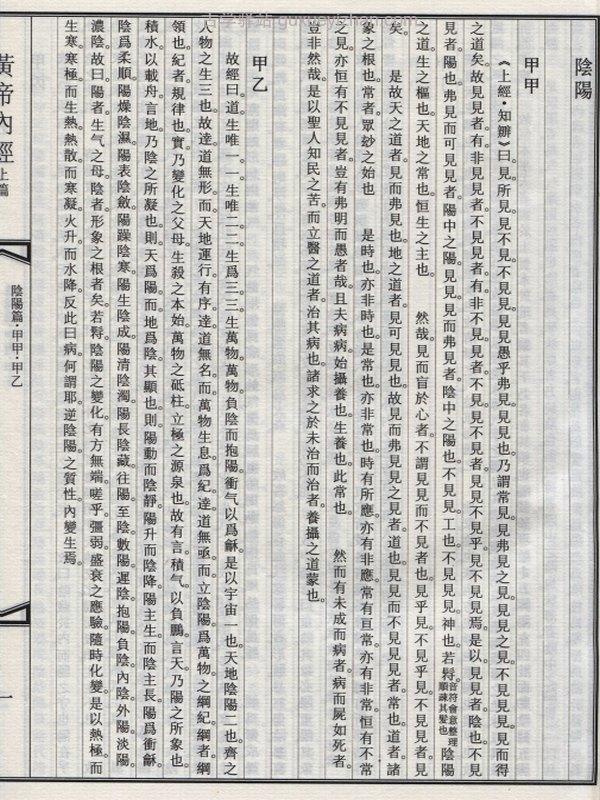 古学驿站
陰陽
甲甲
《上經·知辯》曰。見所見。見不見。不見見見見愚乎。弗見見見也。乃謂常見。見弗見之見。見見之見。不見見見見而得
之道矣。故見見者。有非見見者。不見見者。有非不見見者。不見見不見者。見見不見乎。見不見見焉。是以見見者。陰也。不見
見者。陽也。弗見而可見見者。陽中之陽。見見見而弗見者。陰中之陽也。不見見。工也。不見見見。神也。若髣音符會意整理順疎其髮也陰陽
之道。生之樞也。天地之常也。恒生之主也。　然哉。見而盲於心者。不謂見見而不見者也。見乎見。不見乎見。不見見者。見
矣。　是故天之道者。見而弗見也。地之道者。見可見見也。故見而弗見見之見者。道也。見見而不見見見者。常也。道者。諸
象之根也。常者。眾玅之始也　是時也。亦非時也。是常也。亦非常也。時有所應。亦有非應。常有亘常。亦有非常。恒有不常
之見。亦恒有不見見者。豈有弗明而愚者哉。且夫病病始攝養也。生養也。此常也　然而有未成而病者。病而屍如死者。
豈非然哉。是以聖人知民之苦。而立醫之道者。治其病也。諸求之於未治而治者。養攝之道蒙也。
甲乙
故經曰。道生唯一。一生唯二。二生爲三。三生萬物。萬物負陰而抱陽。衝气以爲龢。是以宇宙一也。天地陰陽二也。齊之
人物之生三也。故達道無形。而天地運行有序。達道無名。而萬物生息爲紀。達道無亟。而立陰陽。爲萬物之綱紀。綱者。綱
領也。紀者。規律也。實乃變化之父母。生殺之本始。萬物之砥柱。立極之源泉也。故有言。積气以負鵬。言天乃陽之所象也。
積水以載舟。言地乃陰之所凝也。則天爲陽。而地爲陰。其顯也。則陽動而陰靜。陽升而陰降。陽主生。而陰主長。陽爲衝龢。
陰爲柔順。陽燥陰濕。陽表陰斂。陽躁陰寒。陽生陰成。陽清陰濁。陽長陰藏。往陽至陰。數陽遲陰。抱陽負陰。內陰外陽。淡陽
濃陰。故曰。陽者。生气之母。陰者。形象之根者矣。若髣陰陽之變化。有方無端。嗟乎。彊弱。盛衰之應驗。隨時化變。是以熱極而
生寒。寒極而生熱。熱散而寒凝。火升而水降。反此曰病。何謂耶。逆陰陽之質性。內變生焉。
黃帝內經上篇
陰陽篇·甲甲·甲乙
一